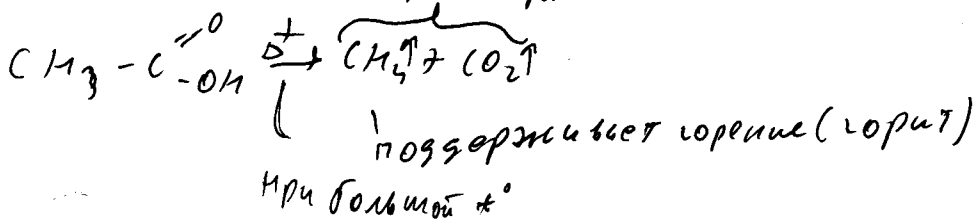 CH₃ - C =O -OH t→ CH₄↑ + CO₂↑
поддерживает горение (горит)
при большой t°